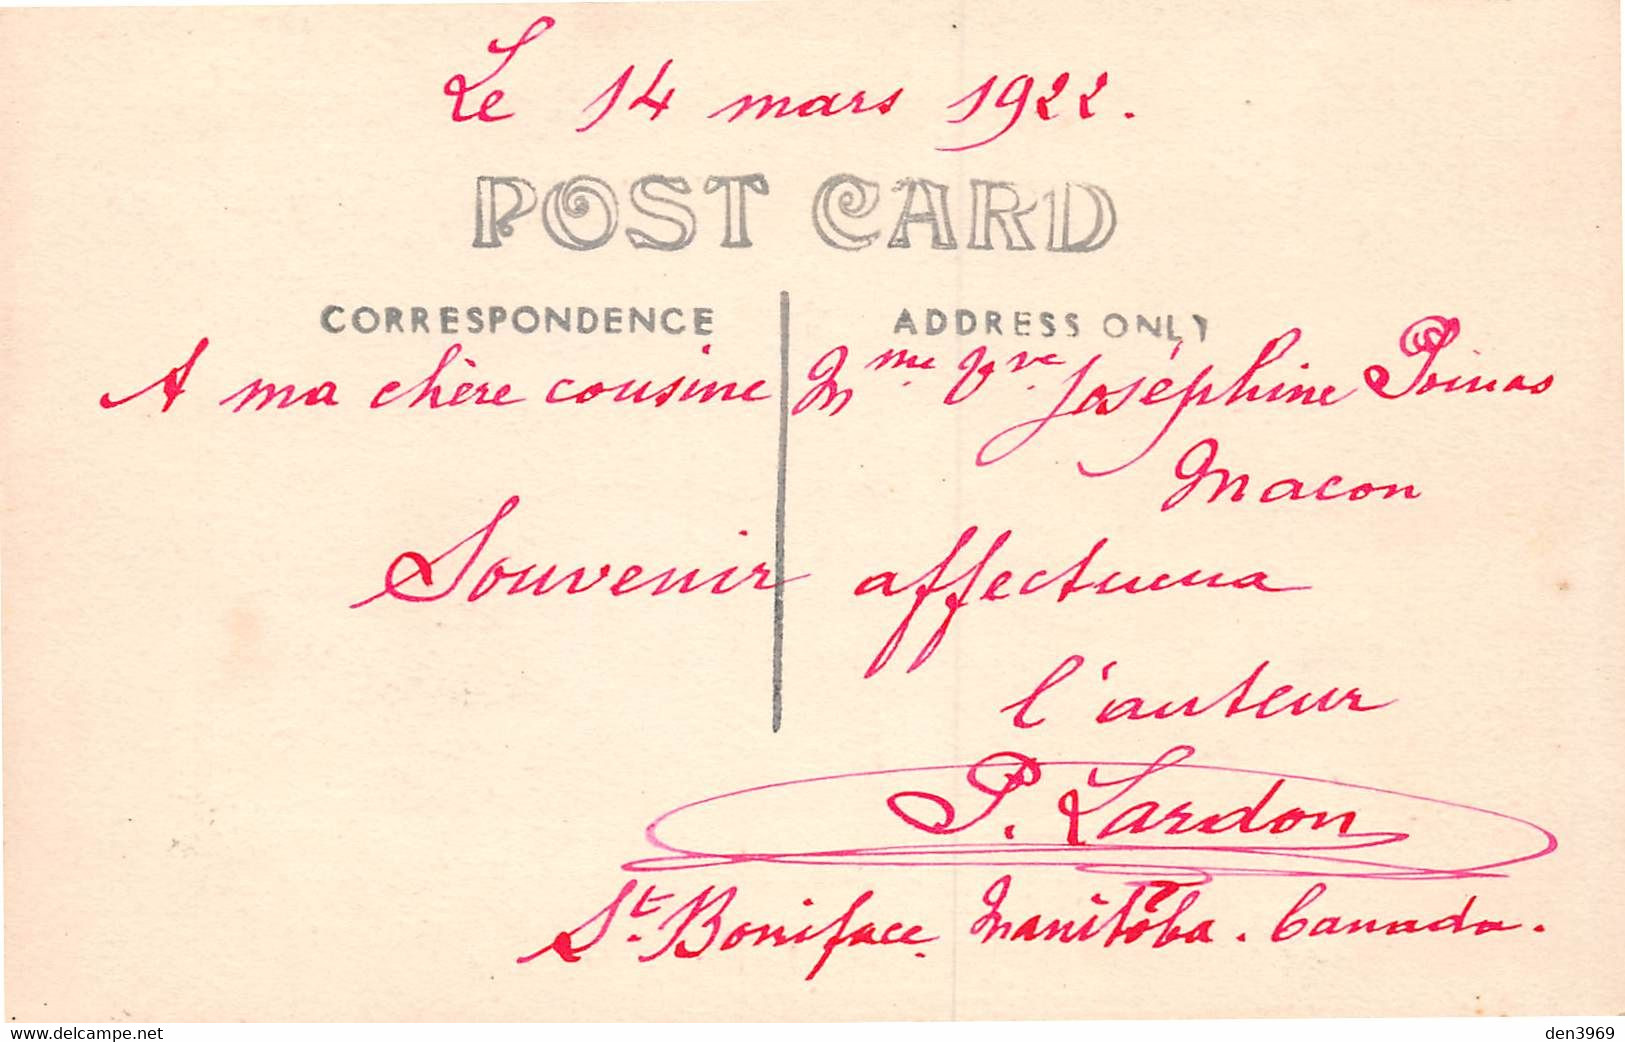 Le 14 mars 1922.
POST CARD
CORRESPONDENCE
ADDRESS ONLY
A ma chère cousine Mme. Vve. Joséphine Poinas
Macon
Souvenir affectueux
l'auteur
P. Lardon
St. Boniface. Manitoba. Canada.
www.delcampe.net
den3969